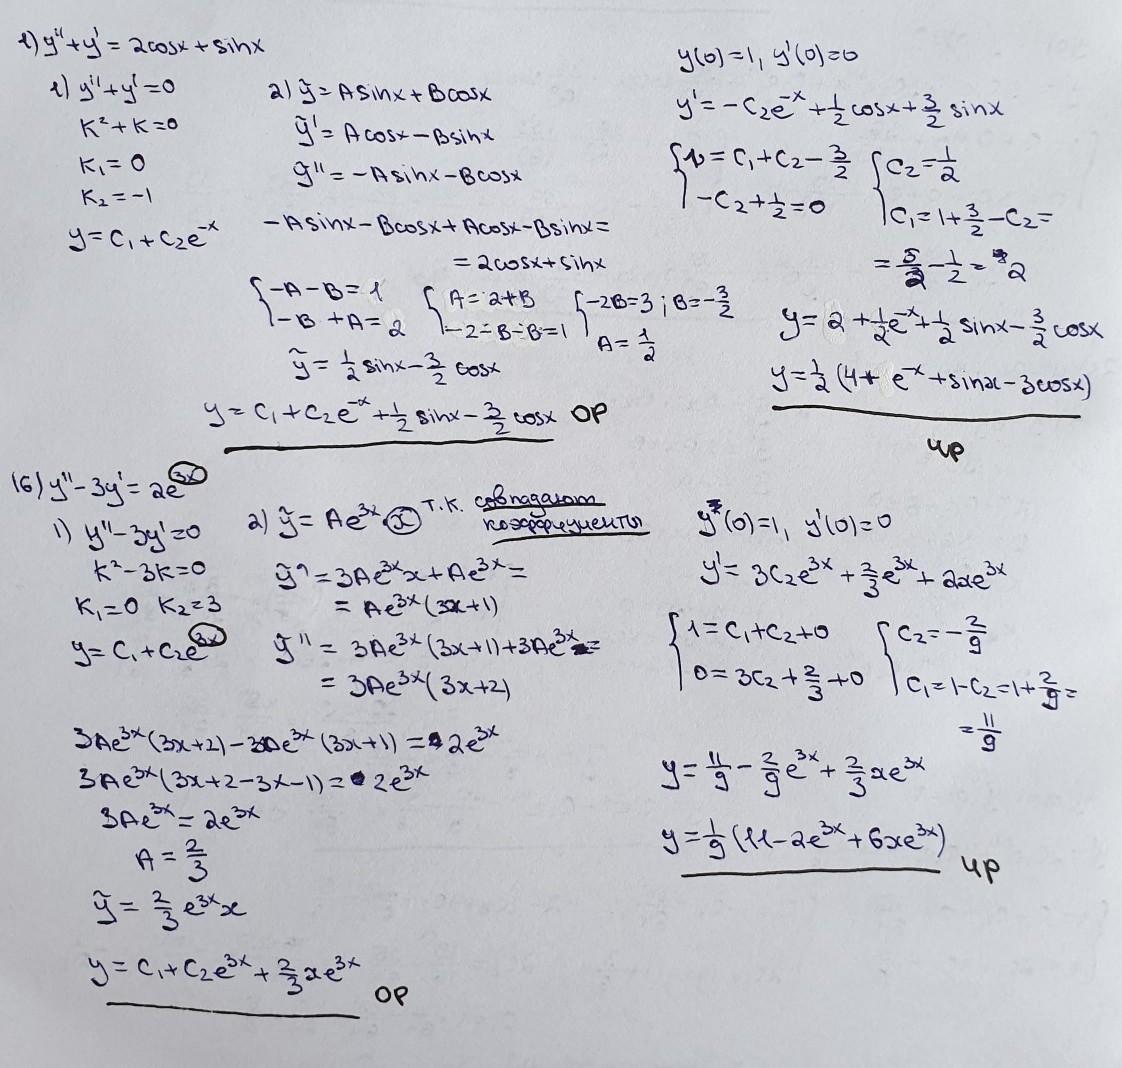 1) y'' + y' = 2cosx + sinx
1) y'' + y' = 0
K² + K = 0
K₁ = 0
K₂ = -1
y = C₁ + C₂e⁻ˣ
2) ỹ = Asinx + Bcosx
ỹ' = Acosx - Bsinx
ỹ'' = -Asinx - Bcosx
-Asinx - Bcosx + Acosx - Bsinx =
= 2cosx + sinx
{ -A - B = 1 { A = 2+B { -2B = 3 ; B = -3/2
{ -B + A = 2 { -2-B-B=1 { A = 1/2
ỹ = 1/2 sinx - 3/2 cosx
y = C₁ + C₂e⁻ˣ + 1/2 sinx - 3/2 cosx ОР
y(0)=1, y'(0)=0
y' = -C₂e⁻ˣ + 1/2 cosx + 3/2 sinx
{ 1 = C₁ + C₂ - 3/2 { C₂ = 1/2
{ -C₂ + 1/2 = 0 { C₁ = 1 + 3/2 - C₂ =
= 5/2 - 1/2 = 2
y = 2 + 1/2 e⁻ˣ + 1/2 sinx - 3/2 cosx
y = 1/2 (4 + e⁻ˣ + sinx - 3cosx)
ЧР
16) y'' - 3y' = 2e³ˣ
1) y'' - 3y' = 0
K² - 3K = 0
K₁ = 0 K₂ = 3
y = C₁ + C₂e³ˣ
2) ỹ = Ae³ˣ x т.к. совпадают
коэффициенты
ỹ' = 3Ae³ˣx + Ae³ˣ =
= Ae³ˣ(3x+1)
ỹ'' = 3Ae³ˣ(3x+1) + 3Ae³ˣ =
= 3Ae³ˣ(3x+2)
3Ae³ˣ(3x+2) - 3Ae³ˣ(3x+1) = 2e³ˣ
3Ae³ˣ(3x+2-3x-1) = 2e³ˣ
3Ae³ˣ = 2e³ˣ
A = 2/3
ỹ = 2/3 e³ˣx
y = C₁ + C₂e³ˣ + 2/3 xe³ˣ
ОР
y(0)=1, y'(0)=0
y' = 3C₂e³ˣ + 2/3 e³ˣ + 2xe³ˣ
{ 1 = C₁ + C₂ + 0 { C₂ = -2/9
{ 0 = 3C₂ + 2/3 + 0 { C₁ = 1 - C₂ = 1 + 2/9 =
= 11/9
y = 11/9 - 2/9 e³ˣ + 2/3 xe³ˣ
y = 1/9 (11 - 2e³ˣ + 6xe³ˣ)
ЧР